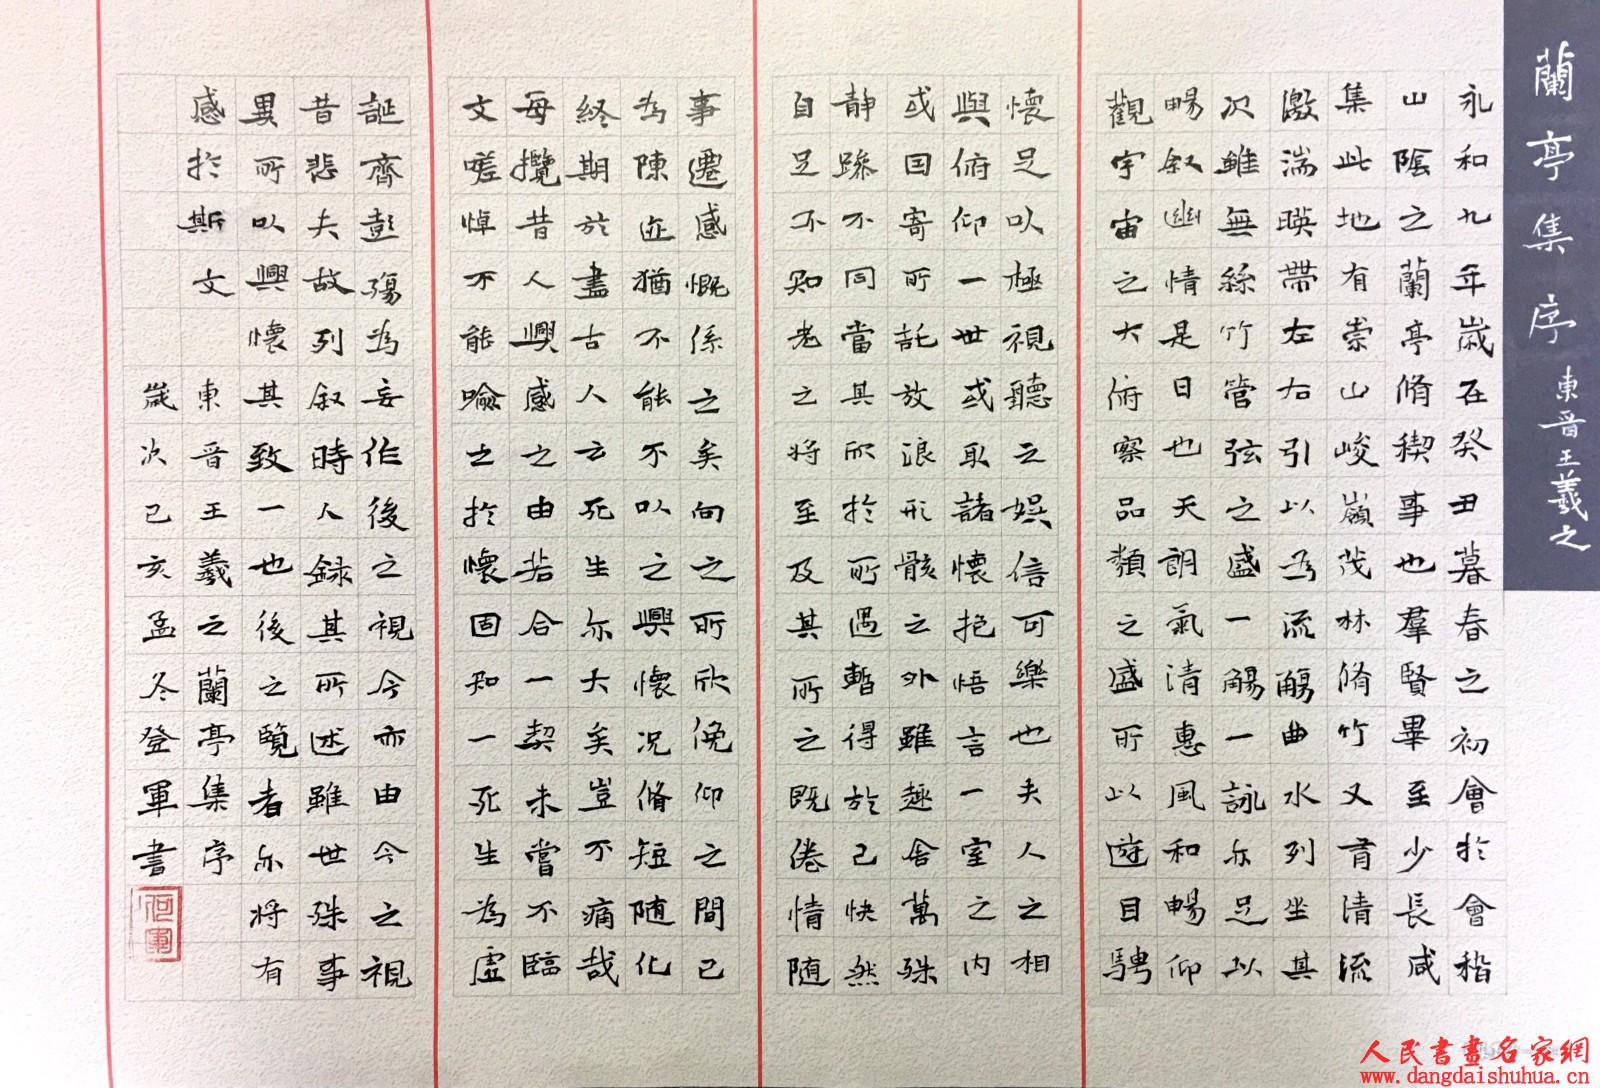 蘭亭集序 東晋王羲之
永和九年歲在癸丑暮春之初會於會稽
山陰之蘭亭脩稧事也羣賢畢至少長咸
集此地有崇山峻嶺茂林脩竹又有清流
激湍暎帶左右引以為流觴曲水列坐其
次雖無絲竹管弦之盛一觴一詠亦足以
暢叙幽情是日也天朗氣清惠風和暢仰
觀宇宙之大俯察品類之盛所以遊目騁
懷足以極視聽之娱信可樂也夫人之相
與俯仰一世或取諸懷抱悟言一室之内
或因寄所託放浪形骸之外雖趣舍萬殊
静躁不同當其欣於所遇暫得於己快然
自足不知老之将至及其所之既倦情随
事遷感慨係之矣向之所欣俛仰之間已
為陳迹猶不能不以之興懷况脩短随化
終期於盡古人云死生亦大矣豈不痛哉
每攬昔人興感之由若合一契未嘗不臨
文嗟悼不能喻之於懷固知一死生為虚
誕齊彭殤為妄作後之視今亦由今之視
昔悲夫故列叙時人録其所述雖世殊事
異所以興懷其致一也後之覽者亦将有
感於斯文 東晋王羲之蘭亭集序
歲次己亥孟冬登軍書
人民書畫名家網
www.dangdaishuhua.cn